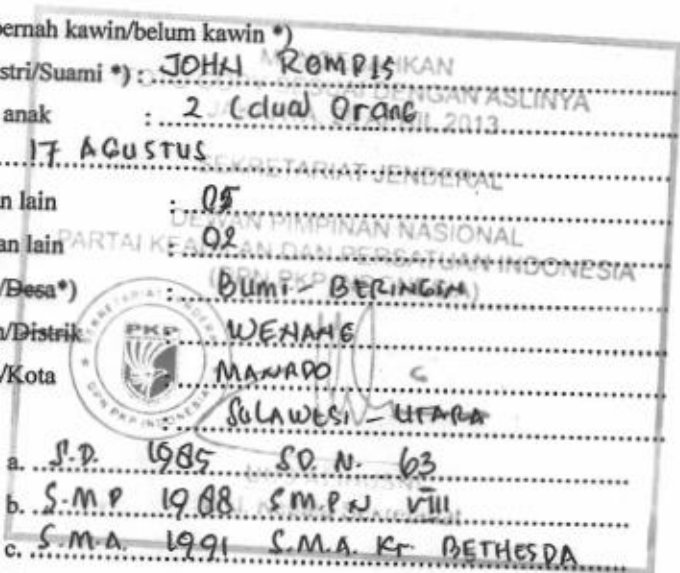 pernah kawin/belum kawin *)
stri/Suami *) : JOHN ROMPIS
anak : 2 (dua) Orang
17 AGUSTUS
n lain : 05
an lain : 02
/Desa*) : BUMI - BERINGIN
n/Distrik WENANG
/Kota : MANADO
: SULAWESI - UTARA
a. S.D. 1985 SD. N. 63
b. S.M.P 1988 S.M.P.N VIII
c. S.M.A. 1991 S.M.A. Kr. BETHESDA
DENGAN ASLINYA
2013
SEKRETARIAT JENDERAL
DEWAN PIMPINAN NASIONAL
PARTAI KEADILAN DAN PERSATUAN INDONESIA
(DPN PKP INDONESIA)
SEKRETARIAT JENDERAL
PKP
DPN PKP INDONESIA